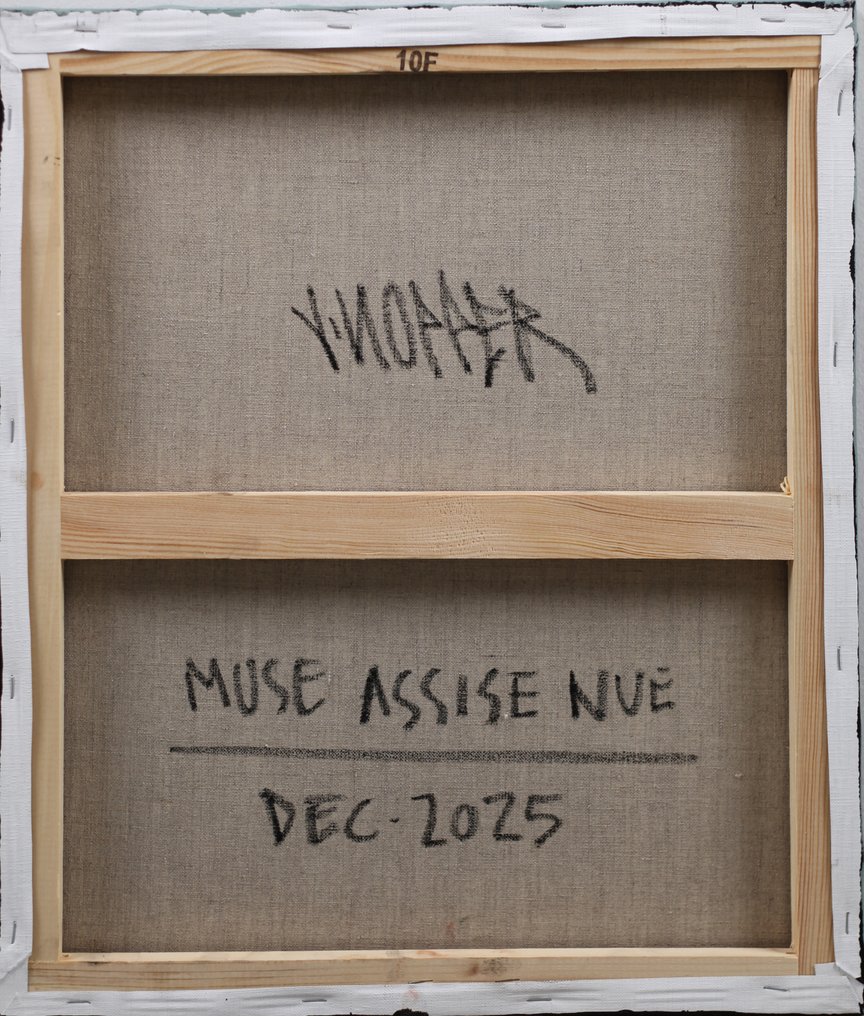 10F
V. NOPPER
MUSE ASSISE NUE
DEC-2025